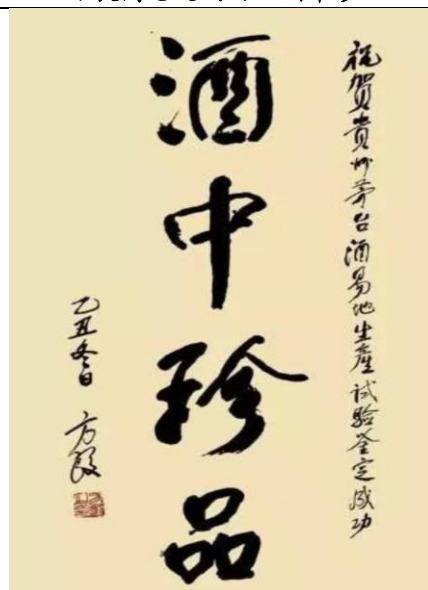 祝賀貴州茅台酒易地生產試驗鉴定成功
酒中珍品
乙丑冬日 方毅